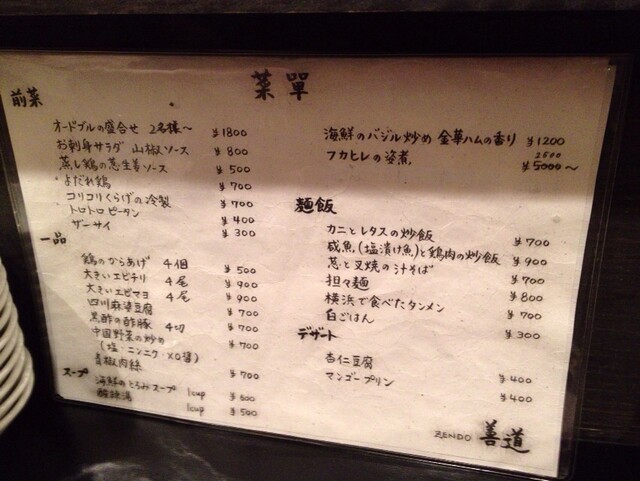 菜單
前菜
オードブルの盛合せ 2名様～ ¥1800
お刺身サラダ 山椒ソース ¥800
蒸し鶏の葱生姜ソース ¥500
よだれ鶏 ¥700
コリコリくらげの冷製 ¥700
トロトロピータン ¥400
ザーサイ ¥300
一品
鶏のからあげ 4個 ¥500
大きいエビチリ 4尾 ¥900
大きいエビマヨ 4尾 ¥900
四川麻婆豆腐 ¥700
黒酢の酢豚 4切 ¥700
中国野菜の炒め ¥700
(塩・ニンニク・XO醤)
青椒肉絲 ¥700
スープ
海鮮のとろみスープ 1cup ¥600
酸辣湯 1cup ¥500
海鮮のバジル炒め 金華ハムの香り ¥1200
2500
フカヒレの姿煮 ¥5000～
麺飯
カニとレタスの炒飯 ¥700
咸魚(塩漬け魚)と鶏肉の炒飯 ¥900
葱と叉焼の汁そば ¥700
担々麺 ¥800
横浜で食べたタンメン ¥700
白ごはん ¥300
デザート
杏仁豆腐 ¥400
マンゴープリン ¥400
ZENDO 善道